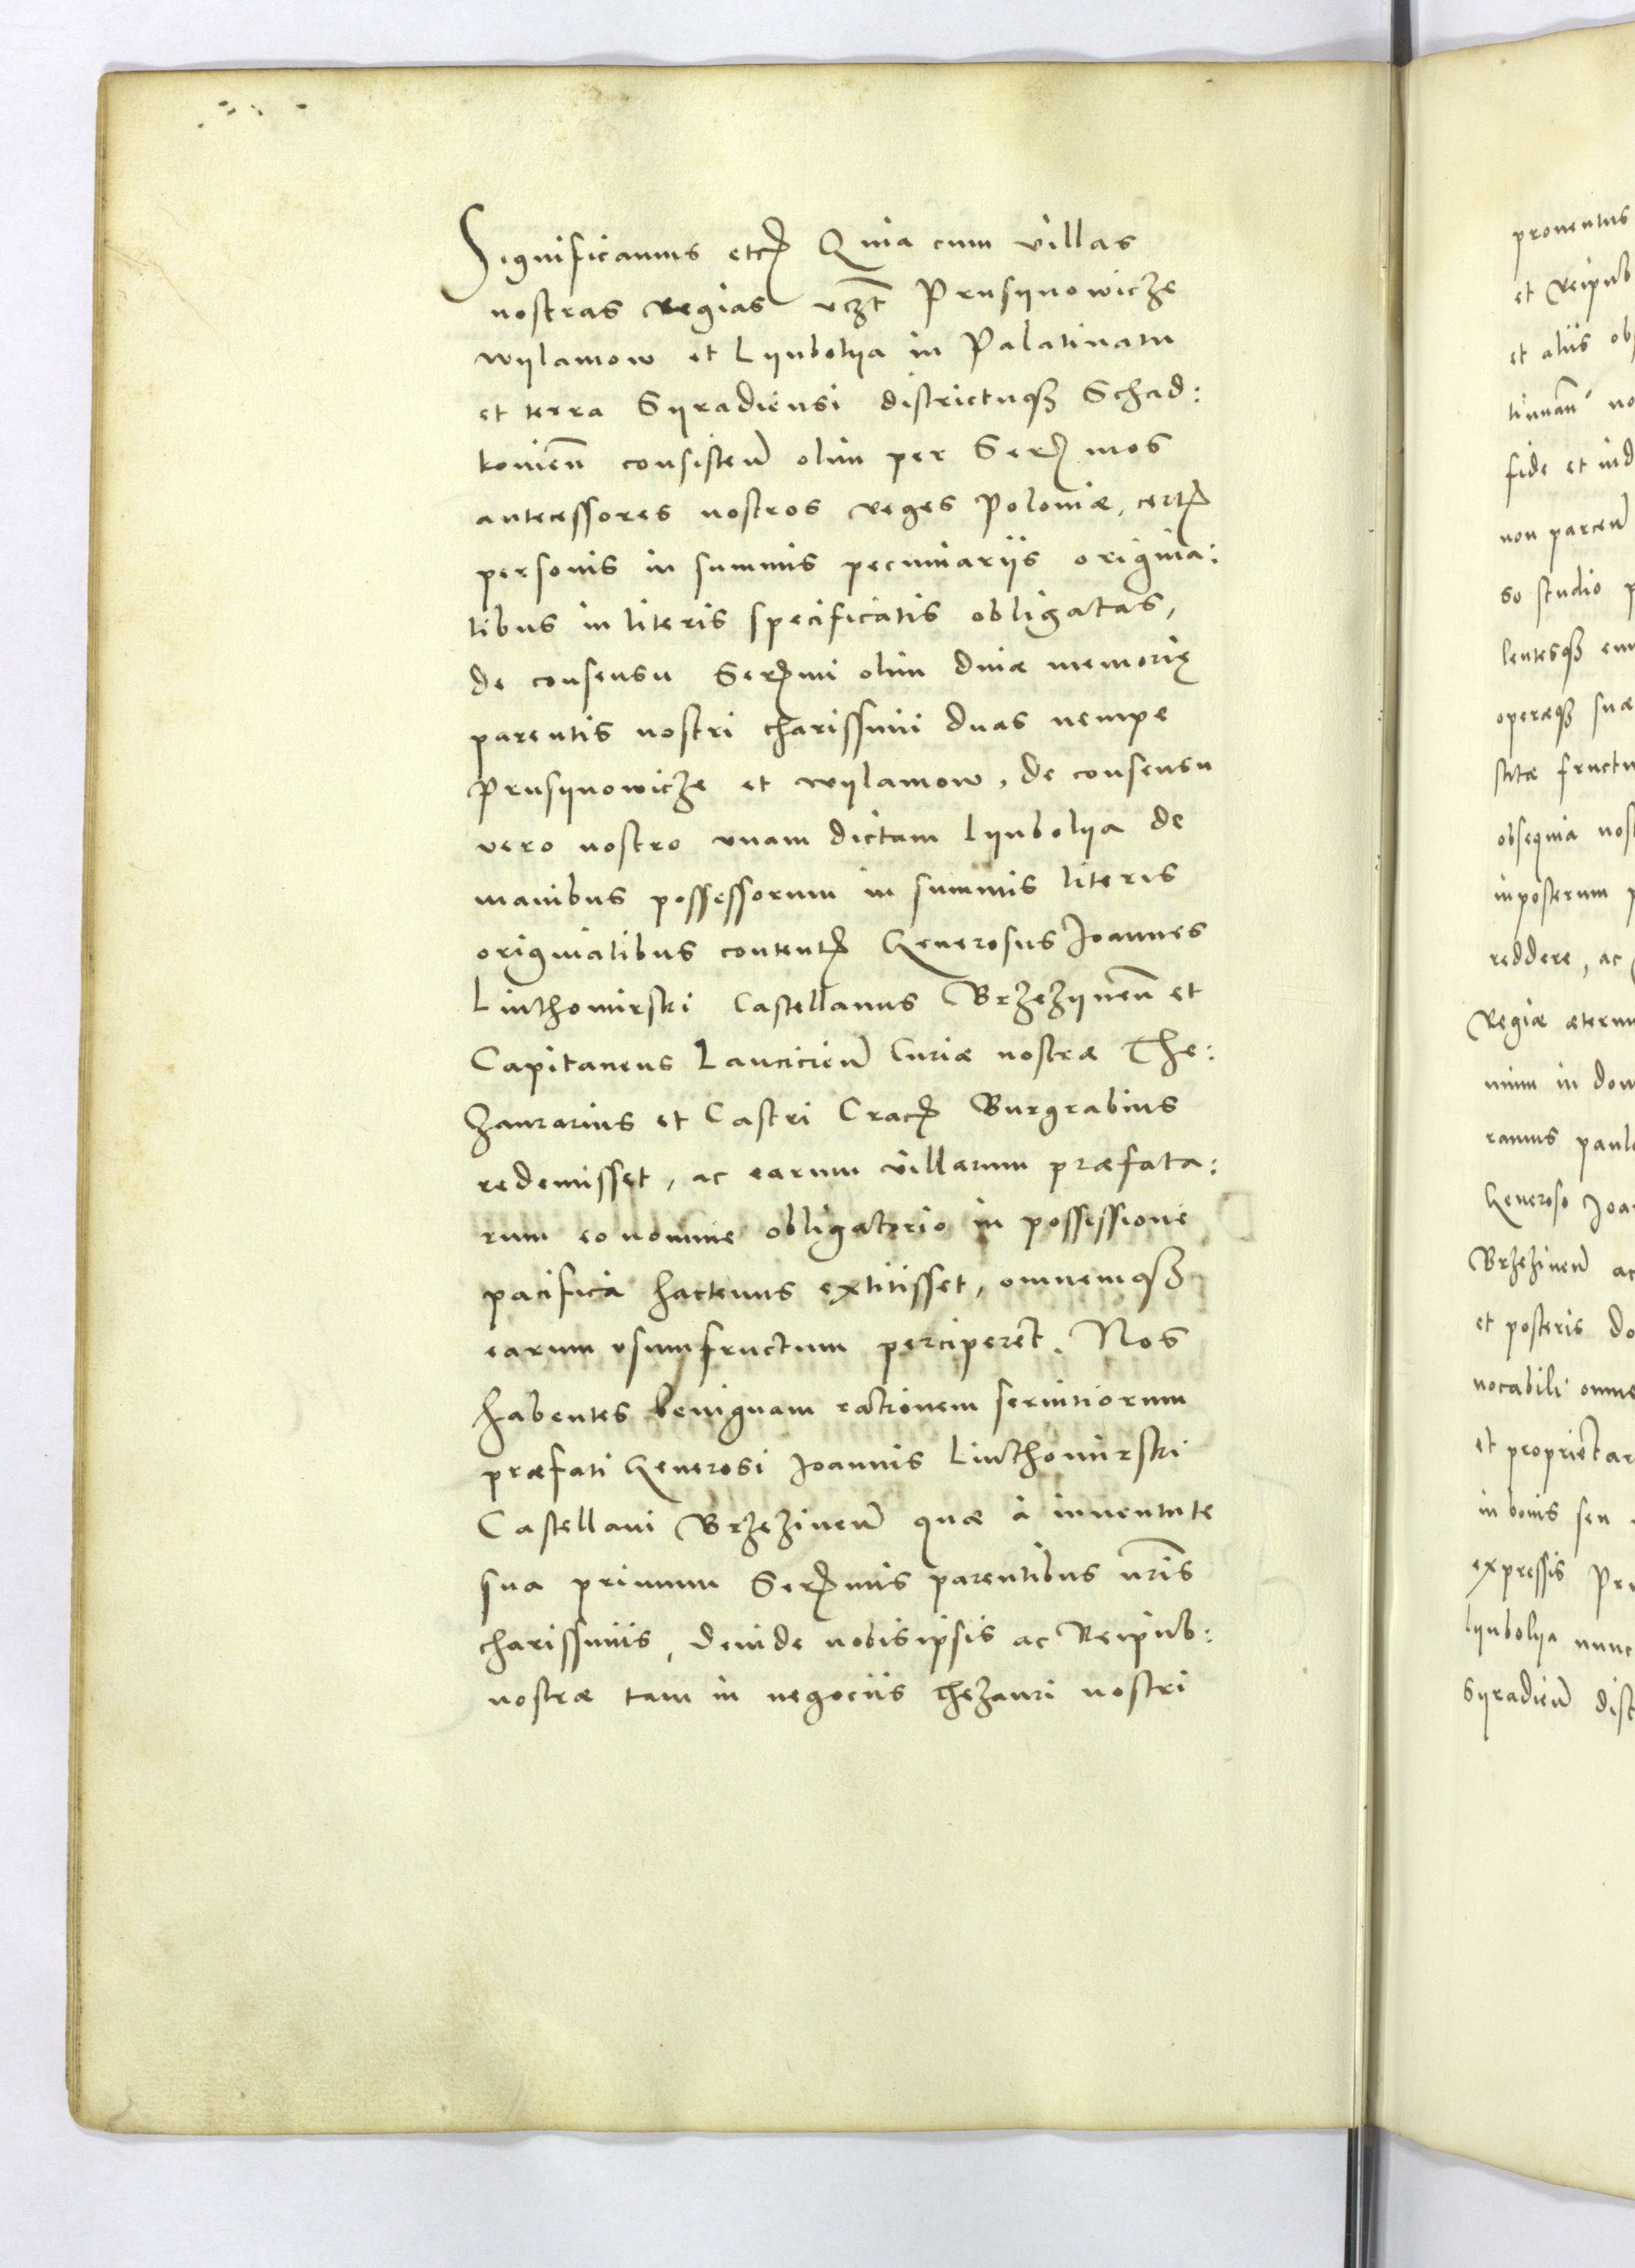 Significamus etcꝭ Quia cum villas
nostras regias vꝫt Prusÿnowicze
wÿlamow et Lÿubolÿa in Palatinatu
et terra Sÿradiensi districtuqꝫ Schad:
kovieñ consisteñ olim per Serꝭmos
antecessores nostros reges Poloniæ, certꝭ
personis in summis pecuniariis origina:
libus in literis specificatis obligatas,
de consensu Serꝭmi olim diuæ memorię
parentis nostri charissimi duas nempe
Prusÿnowicze et wÿlamow, de consensu
vero nostro vnam dictam Lÿubolÿa de
manibus possessorum in summis literis
originalibus contentꝭ Generosus Joannes
Liuthomirski Castellanus Brzezÿneñ et
Capitaneus Lancicieñ Curiæ nostræ The:
zaurarius et Castri Cracꝭ Burgrabius
redemisset, ac earum villarum præfata:
rum eo nomine obligatorio in possessione
pacifica hactenus extitisset, omnemqꝫ
earum vsumfructum perciperet. Nos
habentes benignam rationem seruitiorum
præfati Generosi Joannis Liuthomirski
Castellani Brzezineñ quæ à iuuentute
sua primum Serꝭmis parentibus nr̃is
charissimis, deinde nobis ipsis ac Reipub:
nostræ tam in negociis thezauri nostri
prouentus
et Reipub
et aliis ob
tinuañ no
fide et ind
non parceñ
so studio p
lentesqꝫ eum
operæqꝫ suæ
stitæ fructu
obsequia nost
inposterum p
reddere, ac
Regiæ æternu
nium in dom
ramus paul
Generoso Joan
Brzezineñ ac
et posteris do
uocabili omne
et proprietar
in bonis seu
expressis Pru
Lÿubolÿa nunc
Sÿradieñ dist